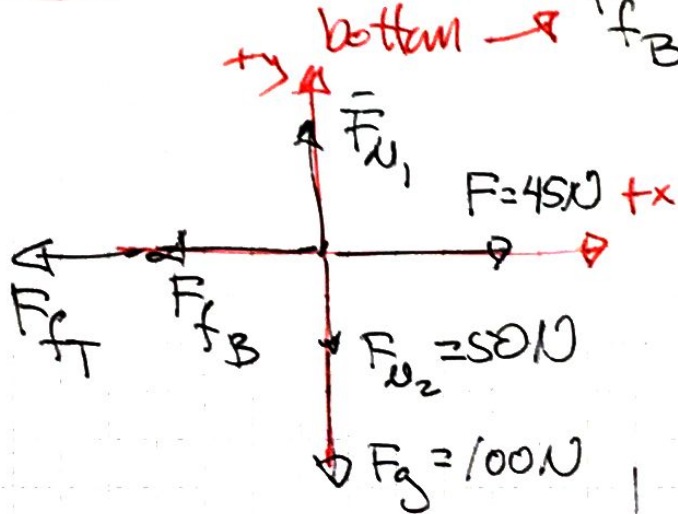 bottom → f_B
+y
F̄_N₁
F=45N +x
F_f_T F_f_B
F_N₂=50N
F_g=100N